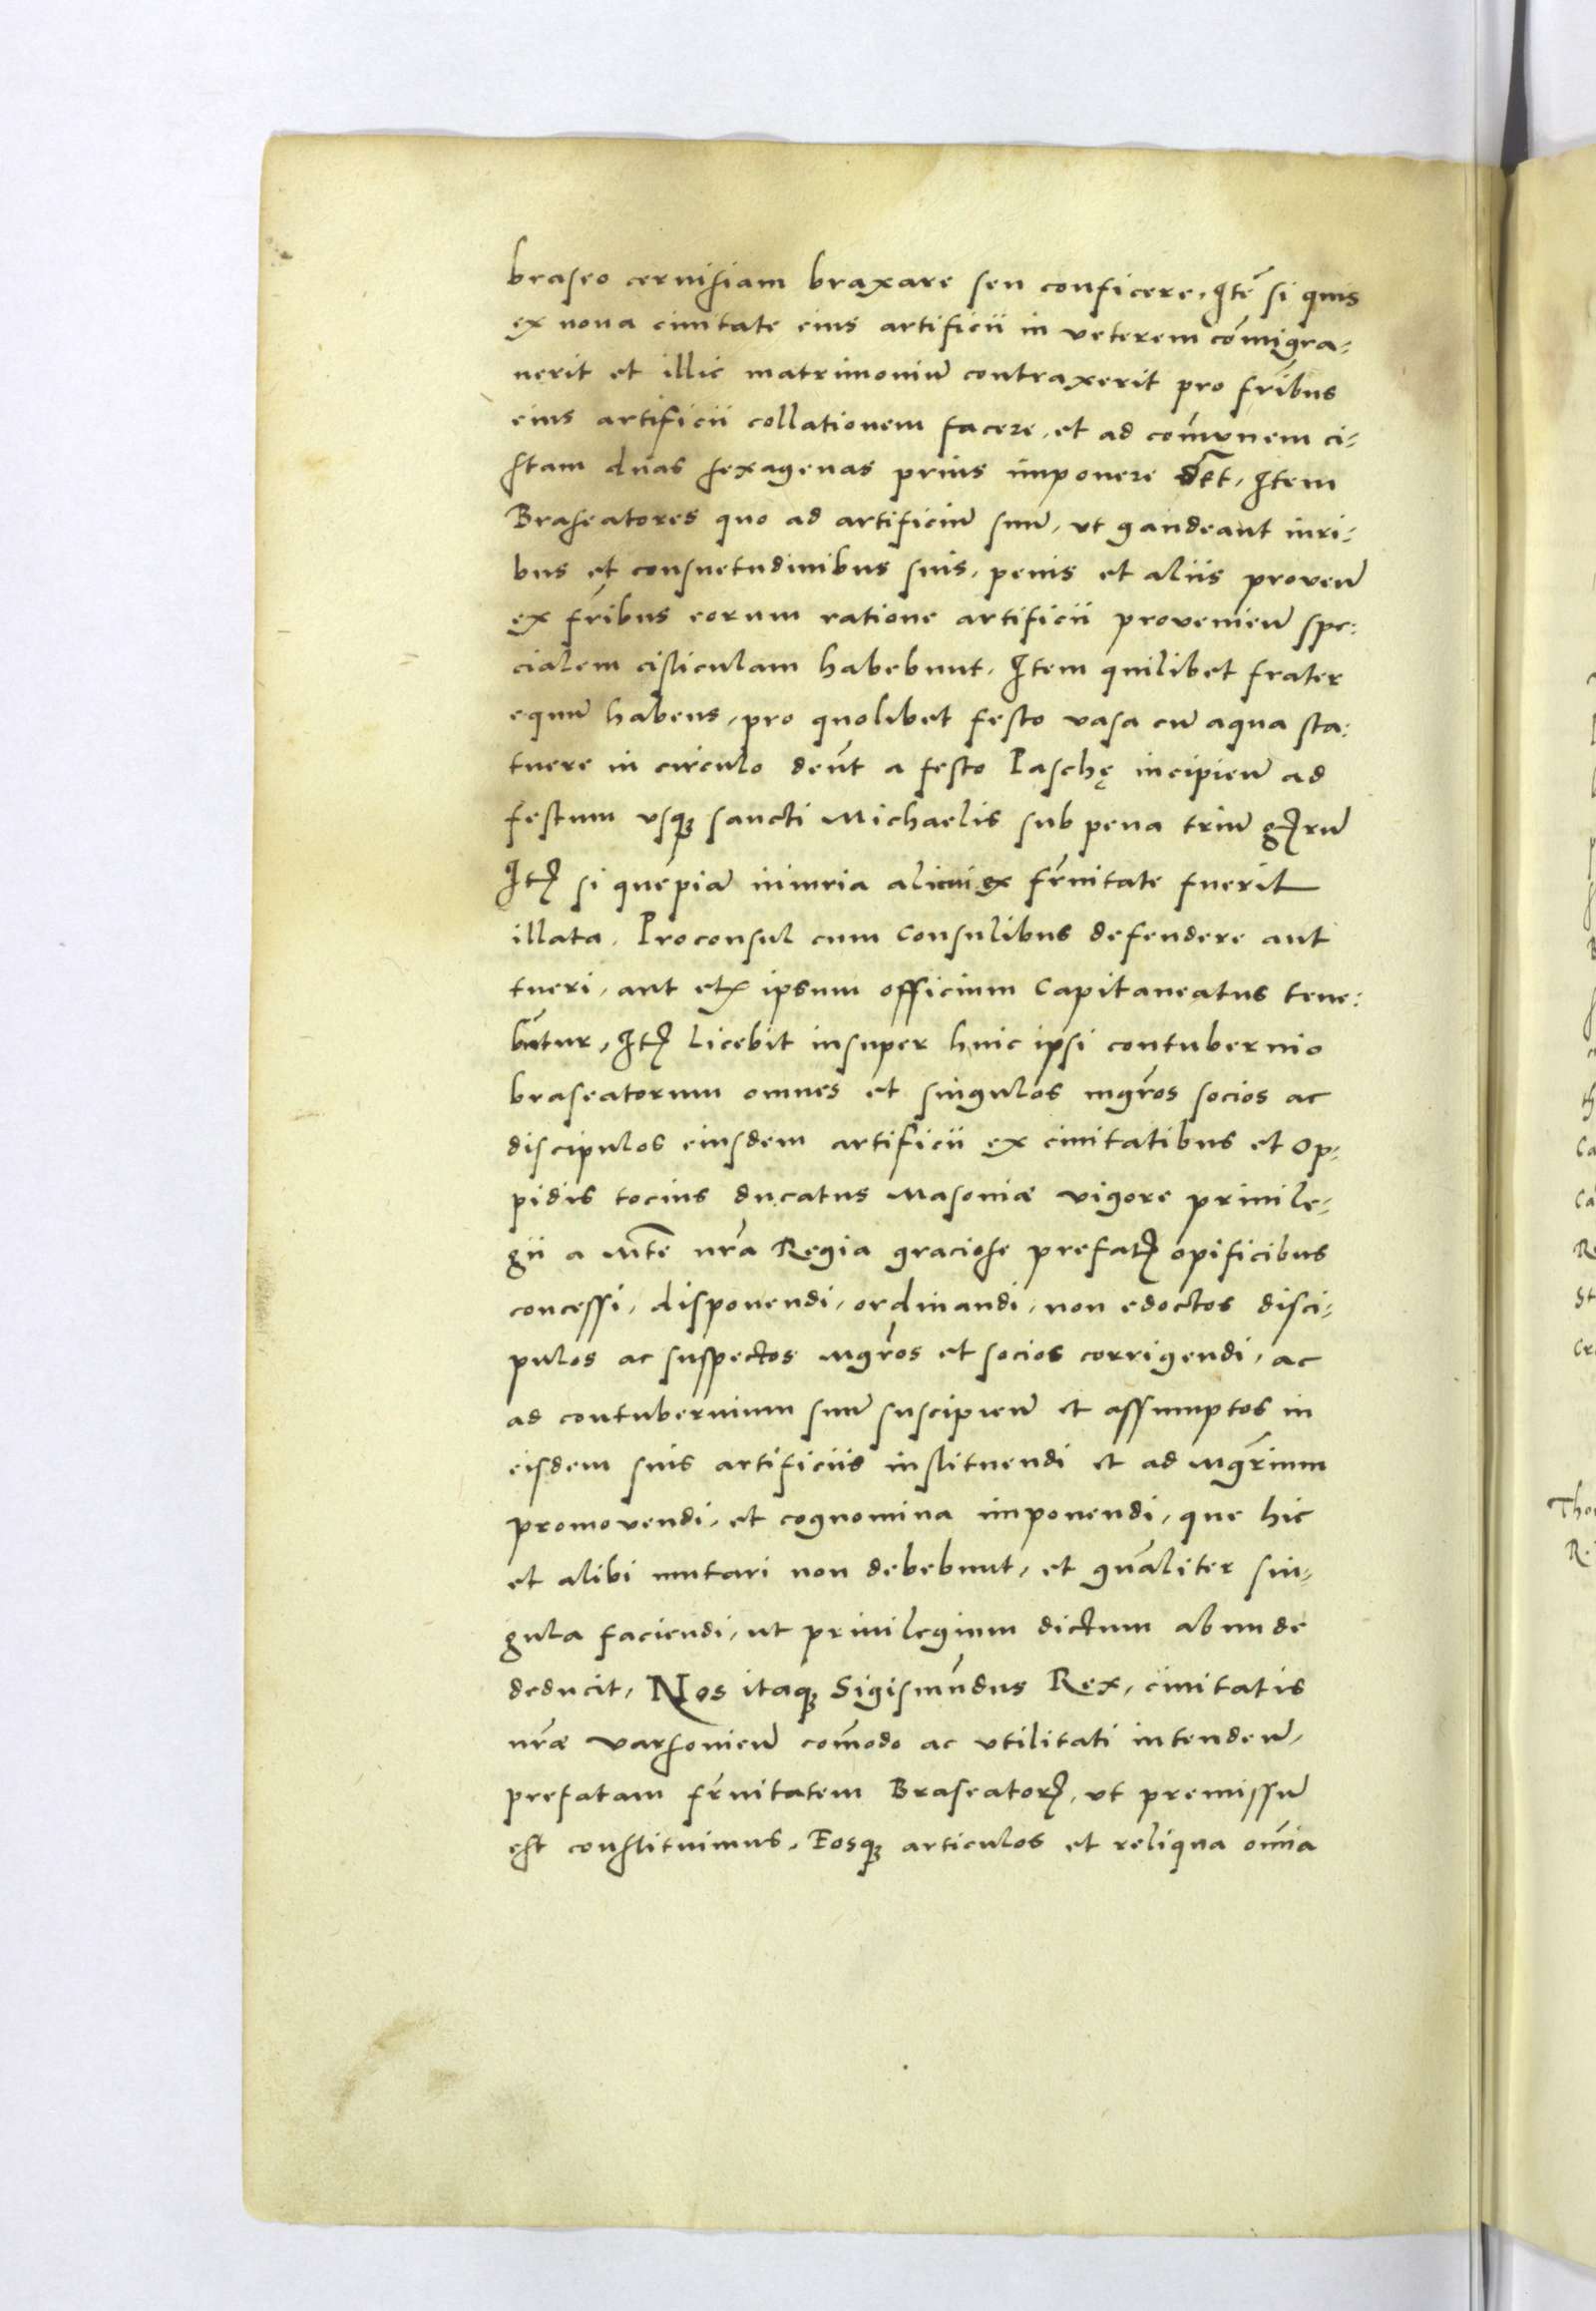 braseo cervisiam braxare seu conficere, Itē si quis
ex noua ciuitate eius artificii in veterem cōmigra-
uerit et illic matrimoniū contraxerit pro fribus
eius artificii collationem facere, et ad comunem ci-
stam duas sexagenas prius imponere dēt, Item
Braseatores quo ad artificiū suū, vt gaudeant iuri-
bus et consuetudinibus suis, penis et aliis proveū
ex fribus eorum ratione artificii provenieū spe:
cialem cisticulam habebunt, Item quilibet frater
equū habens, pro quolibet festo vasa cū aqua sta:
tuere in circulo deūt a festo Paschę incipieū ad
festum vsqꝫ sancti Michaelis sub pena triū gꝝrū
Itꝫ si quepiā iniuria alicui ex frnitate fuerit
illata, Proconsul cum Consulibus defendere aut
tueri, aut etꝫ ipsum officium Capitaneatus tene:
būtur, Itꝫ licebit insuper huic ipsi contubernio
braseatorum omnes et singulos mgros socios ac
discipulos eiusdem artificii ex ciuitatibus et op-
pidis tocius ducatus Masoviæ vigore priuile-
gii a Mte nra Regia graciose prefatꝫ opificibus
concessi, disponendi, ordinandi, non edoctos disci-
pulos ac suspectos mgros et socios corrigendi, ac
ad contubernium suū suscipieū et assumptos in
eisdem suis artificiis instituendi et ad mgrium
promovendi, et cognomina imponendi, que hic
et alibi mutari non debebunt, et gnāliter sin-
gula faciendi, ut priuilegium dictum abunde
deducit, Nos itaqꝫ Sigismūdus Rex, ciuitatis
nræ varsovieū cōmodo ac vtilitati intendeū,
prefatam frnitatem Braseatorꝫ, vt premissū
est constituimus, Eosqꝫ articulos et reliqua omīa